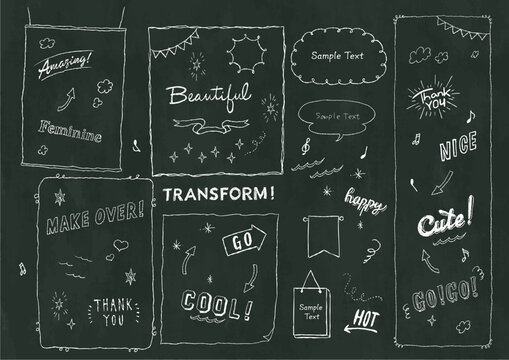 Amazing!
Feminine
MAKE OVER!
THANK
YOU
Beautiful
TRANSFORM!
GO
COOL!
Sample Text
Sample Text
happy
Sample
Text
HOT
Thank
YOU
NICE
Cute!
GO!GO!